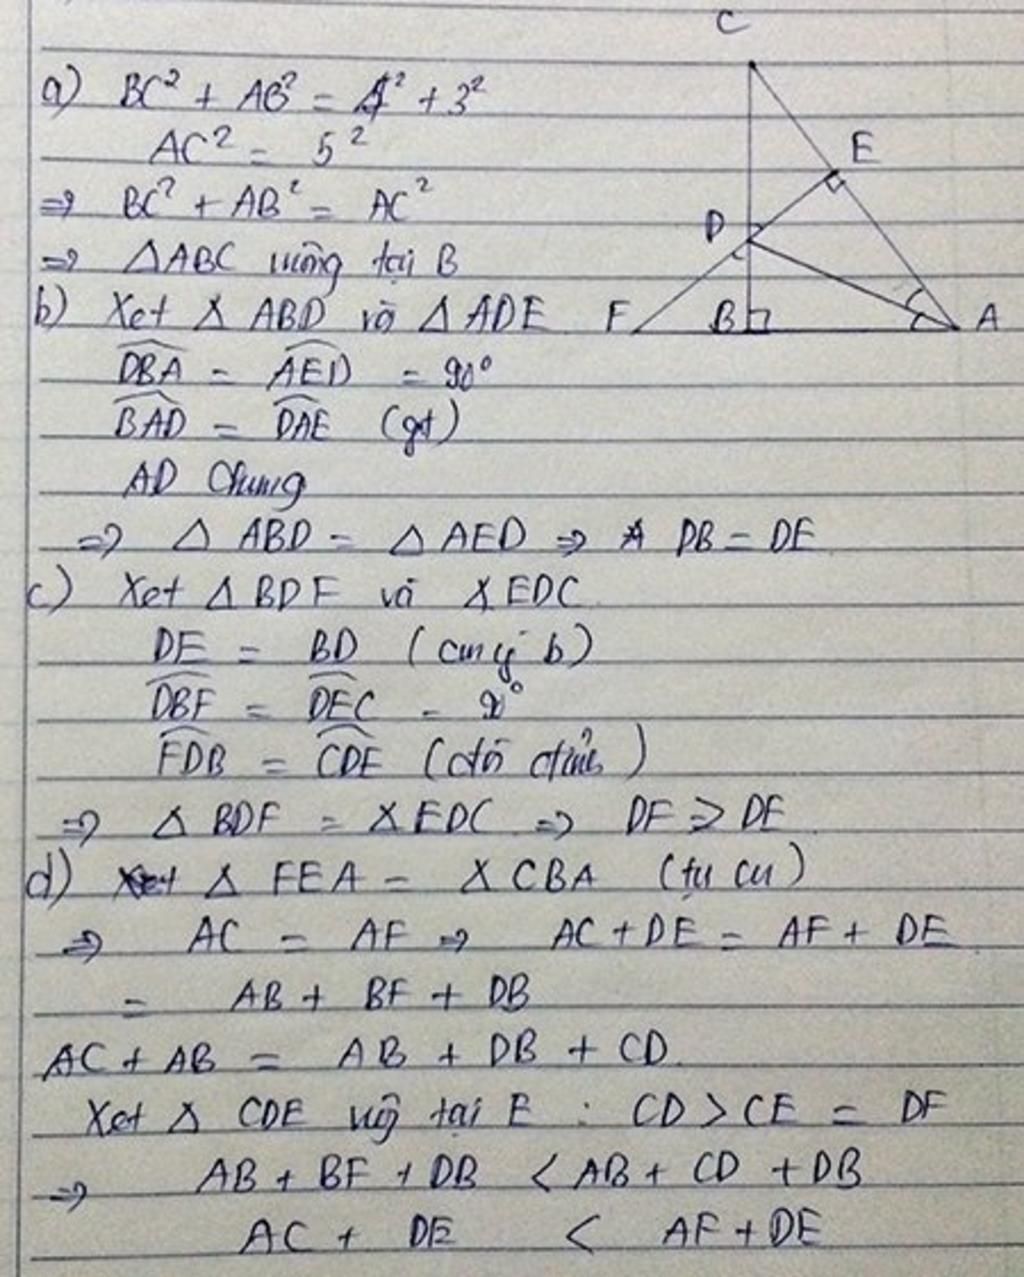 C
a) BC² + AB² = 4² + 3²
E
AC² = 5²
⇒ BC² + AB² = AC²
D
⇒ △ABC vuông tại B
b) Xet △ ABD và △ ADE
F B A
DBA = AED = 90°
BAD = DAE (gt)
AD Chung
⇒ △ ABD = △ AED ⇒ DB = DE
c) Xet △ BDF và △ EDC
DE = BD (b)
DBF = DEC = 90°
FDB = CDE (đối đỉnh)
⇒ △ BDF = △ EDC ⇒ DF > DE
d) △ FEA = △ CBA (tự cm)
⇒ AC = AF ⇒ AC + DE = AF + DE
= AB + BF + DB
AC + AB = AB + DB + CD
Xet △ CDE vg tại E : CD > CE = DF
⇒ AB + BF + DB < AB + CD + DB
AC + DE < AF + DE